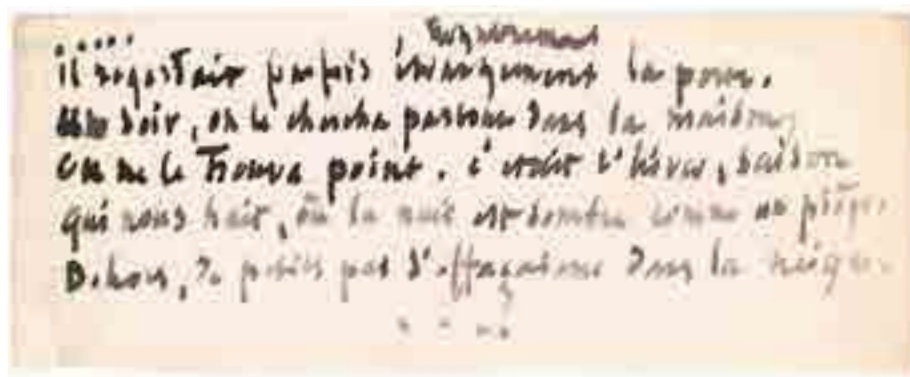 .....
il regardait parfois étrangement la porte.
Un soir, on le chercha partout dans la maison,
On ne le trouva point. c'était l'hiver, saison
qui nous hait, où la nuit est sombre comme un piège.
Dehors, de petits pas s'effaçaient dans la neige.
....